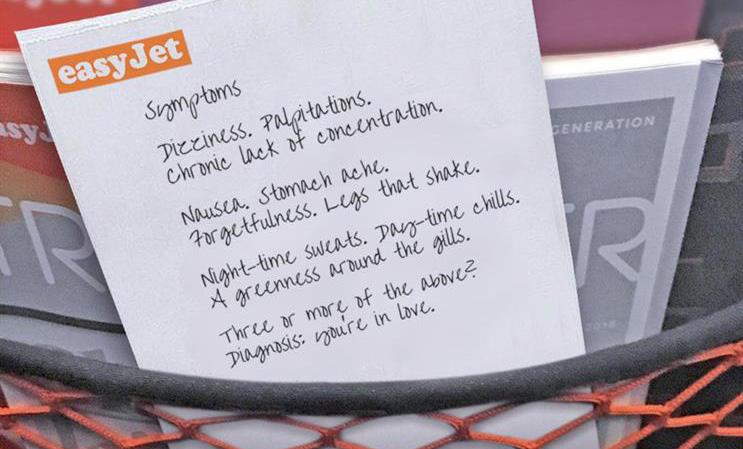 easyJet
Symptoms
Dizziness. Palpitations.
Chronic lack of concentration.
Nausea. Stomach ache.
Forgetfulness. Legs that shake.
Night-time sweats. Day-time chills.
A greenness around the gills.
Three or more of the above?
Diagnosis: you're in love.
GENERATION
TR